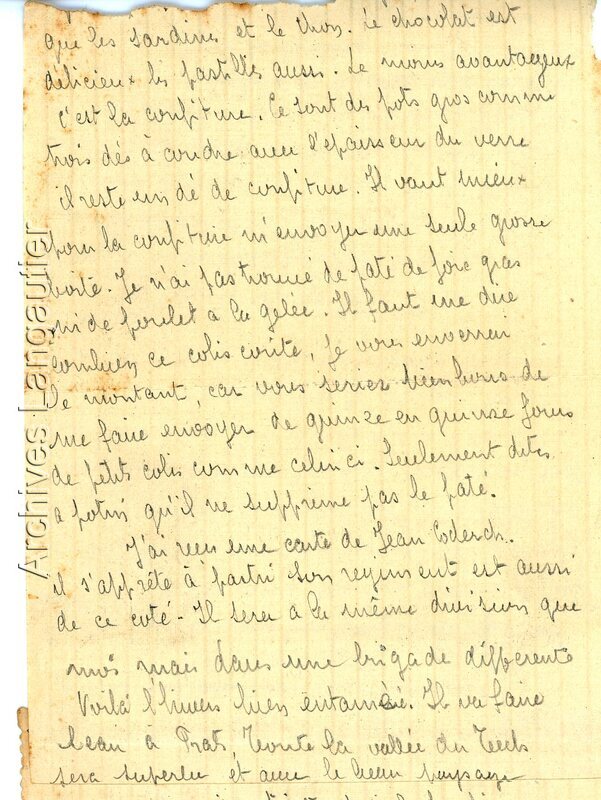 que les sardines et le thon. Le chocolat est
délicieux les pastilles aussi. Le moins avantageux
c'est la confiture. Ce sont des pots gros comme
trois dés à coudre avec l'épaisseur du verre
il reste un dé de confiture. Il vaut mieux
pour la confiture m'envoyer une seule grosse
boite. Je n'ai pas trouvé de paté de foie gras
ni de poulet a la gelée. Il faut me dire
combien ce colis coute, je vous enverrai
le montant, car vous seriez bien bons de
me faire envoyer de quinze en quinze jours
de petits colis comme celui ci. Seulement dites
a potin qu'il ne supprime pas le paté.
J'ai reçu une carte de Jean Coderch.
il s'apprête à partir son regiment est aussi
de ce coté - Il sera a la même division que
moi mais dans une brigade differente
Voilà l'hiver bien entamé. Il va faire
beau à Prats, toute la vallée du Tech
sera superbe et avec le beau paysage
Archives Langautier